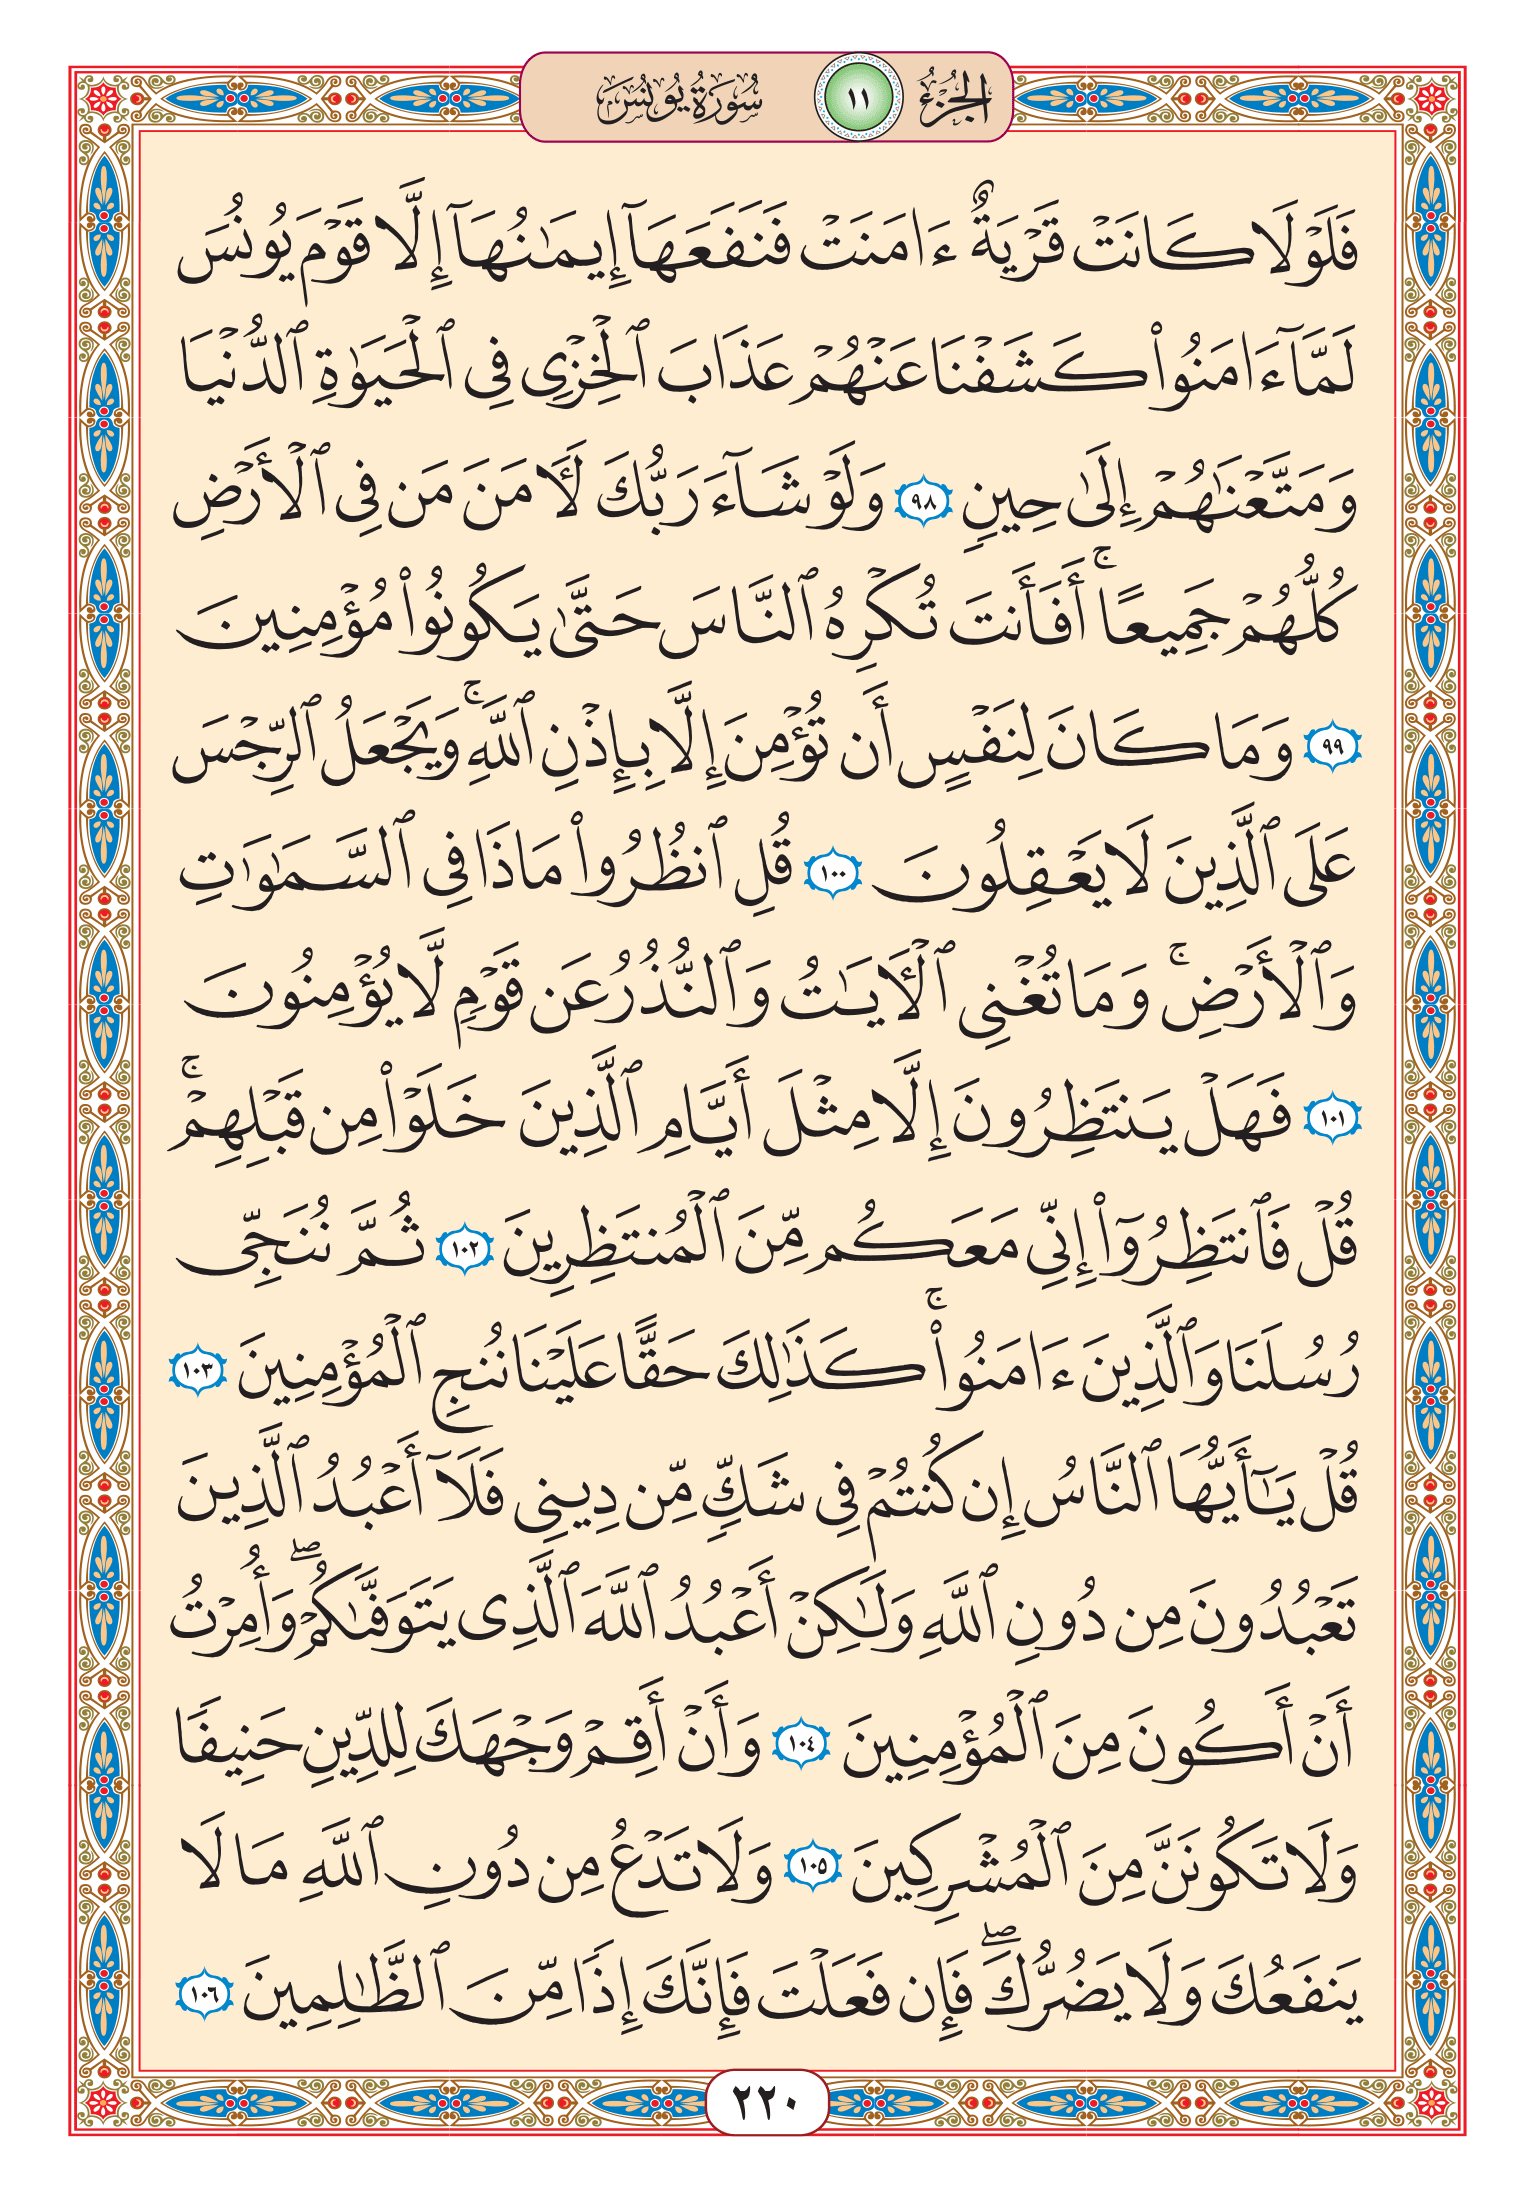 الجُزْءُ ١١ سُورَةُ يُونُسَ
فَلَوْلَا كَانَتْ قَرْيَةٌ ءَامَنَتْ فَنَفَعَهَآ إِيمَٰنُهَآ إِلَّا قَوْمَ يُونُسَ
لَمَّآ ءَامَنُوا۟ كَشَفْنَا عَنْهُمْ عَذَابَ ٱلْخِزْىِ فِى ٱلْحَيَوٰةِ ٱلدُّنْيَا
وَمَتَّعْنَٰهُمْ إِلَىٰ حِينٍ ٩٨ وَلَوْ شَآءَ رَبُّكَ لَءَامَنَ مَن فِى ٱلْأَرْضِ
كُلُّهُمْ جَمِيعًا ۚ أَفَأَنتَ تُكْرِهُ ٱلنَّاسَ حَتَّىٰ يَكُونُوا۟ مُؤْمِنِينَ
٩٩ وَمَا كَانَ لِنَفْسٍ أَن تُؤْمِنَ إِلَّا بِإِذْنِ ٱللَّهِ ۚ وَيَجْعَلُ ٱلرِّجْسَ
عَلَى ٱلَّذِينَ لَا يَعْقِلُونَ ١٠٠ قُلِ ٱنظُرُوا۟ مَاذَا فِى ٱلسَّمَٰوَٰتِ
وَٱلْأَرْضِ ۚ وَمَا تُغْنِى ٱلْءَايَٰتُ وَٱلنُّذُرُ عَن قَوْمٍ لَّا يُؤْمِنُونَ
١٠١ فَهَلْ يَنتَظِرُونَ إِلَّا مِثْلَ أَيَّامِ ٱلَّذِينَ خَلَوْا۟ مِن قَبْلِهِمْ ۚ
قُلْ فَٱنتَظِرُوٓا۟ إِنِّى مَعَكُم مِّنَ ٱلْمُنتَظِرِينَ ١٠٢ ثُمَّ نُنَجِّى
رُسُلَنَا وَٱلَّذِينَ ءَامَنُوا۟ ۚ كَذَٰلِكَ حَقًّا عَلَيْنَا نُنجِ ٱلْمُؤْمِنِينَ ١٠٣
قُلْ يَٰٓأَيُّهَا ٱلنَّاسُ إِن كُنتُمْ فِى شَكٍّ مِّن دِينِى فَلَآ أَعْبُدُ ٱلَّذِينَ
تَعْبُدُونَ مِن دُونِ ٱللَّهِ وَلَٰكِنْ أَعْبُدُ ٱللَّهَ ٱلَّذِى يَتَوَفَّىٰكُمْ ۖ وَأُمِرْتُ
أَنْ أَكُونَ مِنَ ٱلْمُؤْمِنِينَ ١٠٤ وَأَنْ أَقِمْ وَجْهَكَ لِلدِّينِ حَنِيفًا
وَلَا تَكُونَنَّ مِنَ ٱلْمُشْرِكِينَ ١٠٥ وَلَا تَدْعُ مِن دُونِ ٱللَّهِ مَا لَا
يَنفَعُكَ وَلَا يَضُرُّكَ ۖ فَإِن فَعَلْتَ فَإِنَّكَ إِذًا مِّنَ ٱلظَّٰلِمِينَ ١٠٦
٢٢٠